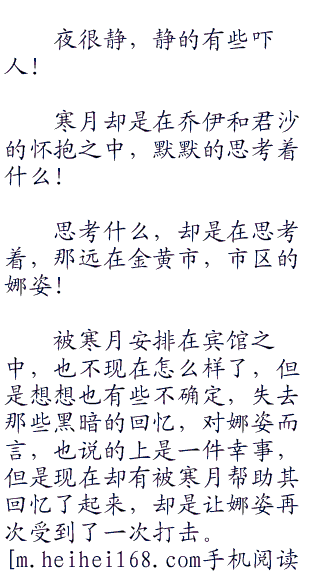 夜很静，静的有些吓
人！
寒月却是在乔伊和君沙
的怀抱之中，默默的思考着
什么！
思考什么，却是在思考
着，那远在金黄市，市区的
娜姿！
被寒月安排在宾馆之
中，也不现在怎么样了，但
是想想也有些不确定，失去
那些黑暗的回忆，对娜姿而
言，也说的上是一件幸事，
但是现在却有被寒月帮助其
回忆了起来，却是让娜姿再
次受到了一次打击。
[m.heihei168.com手机阅读